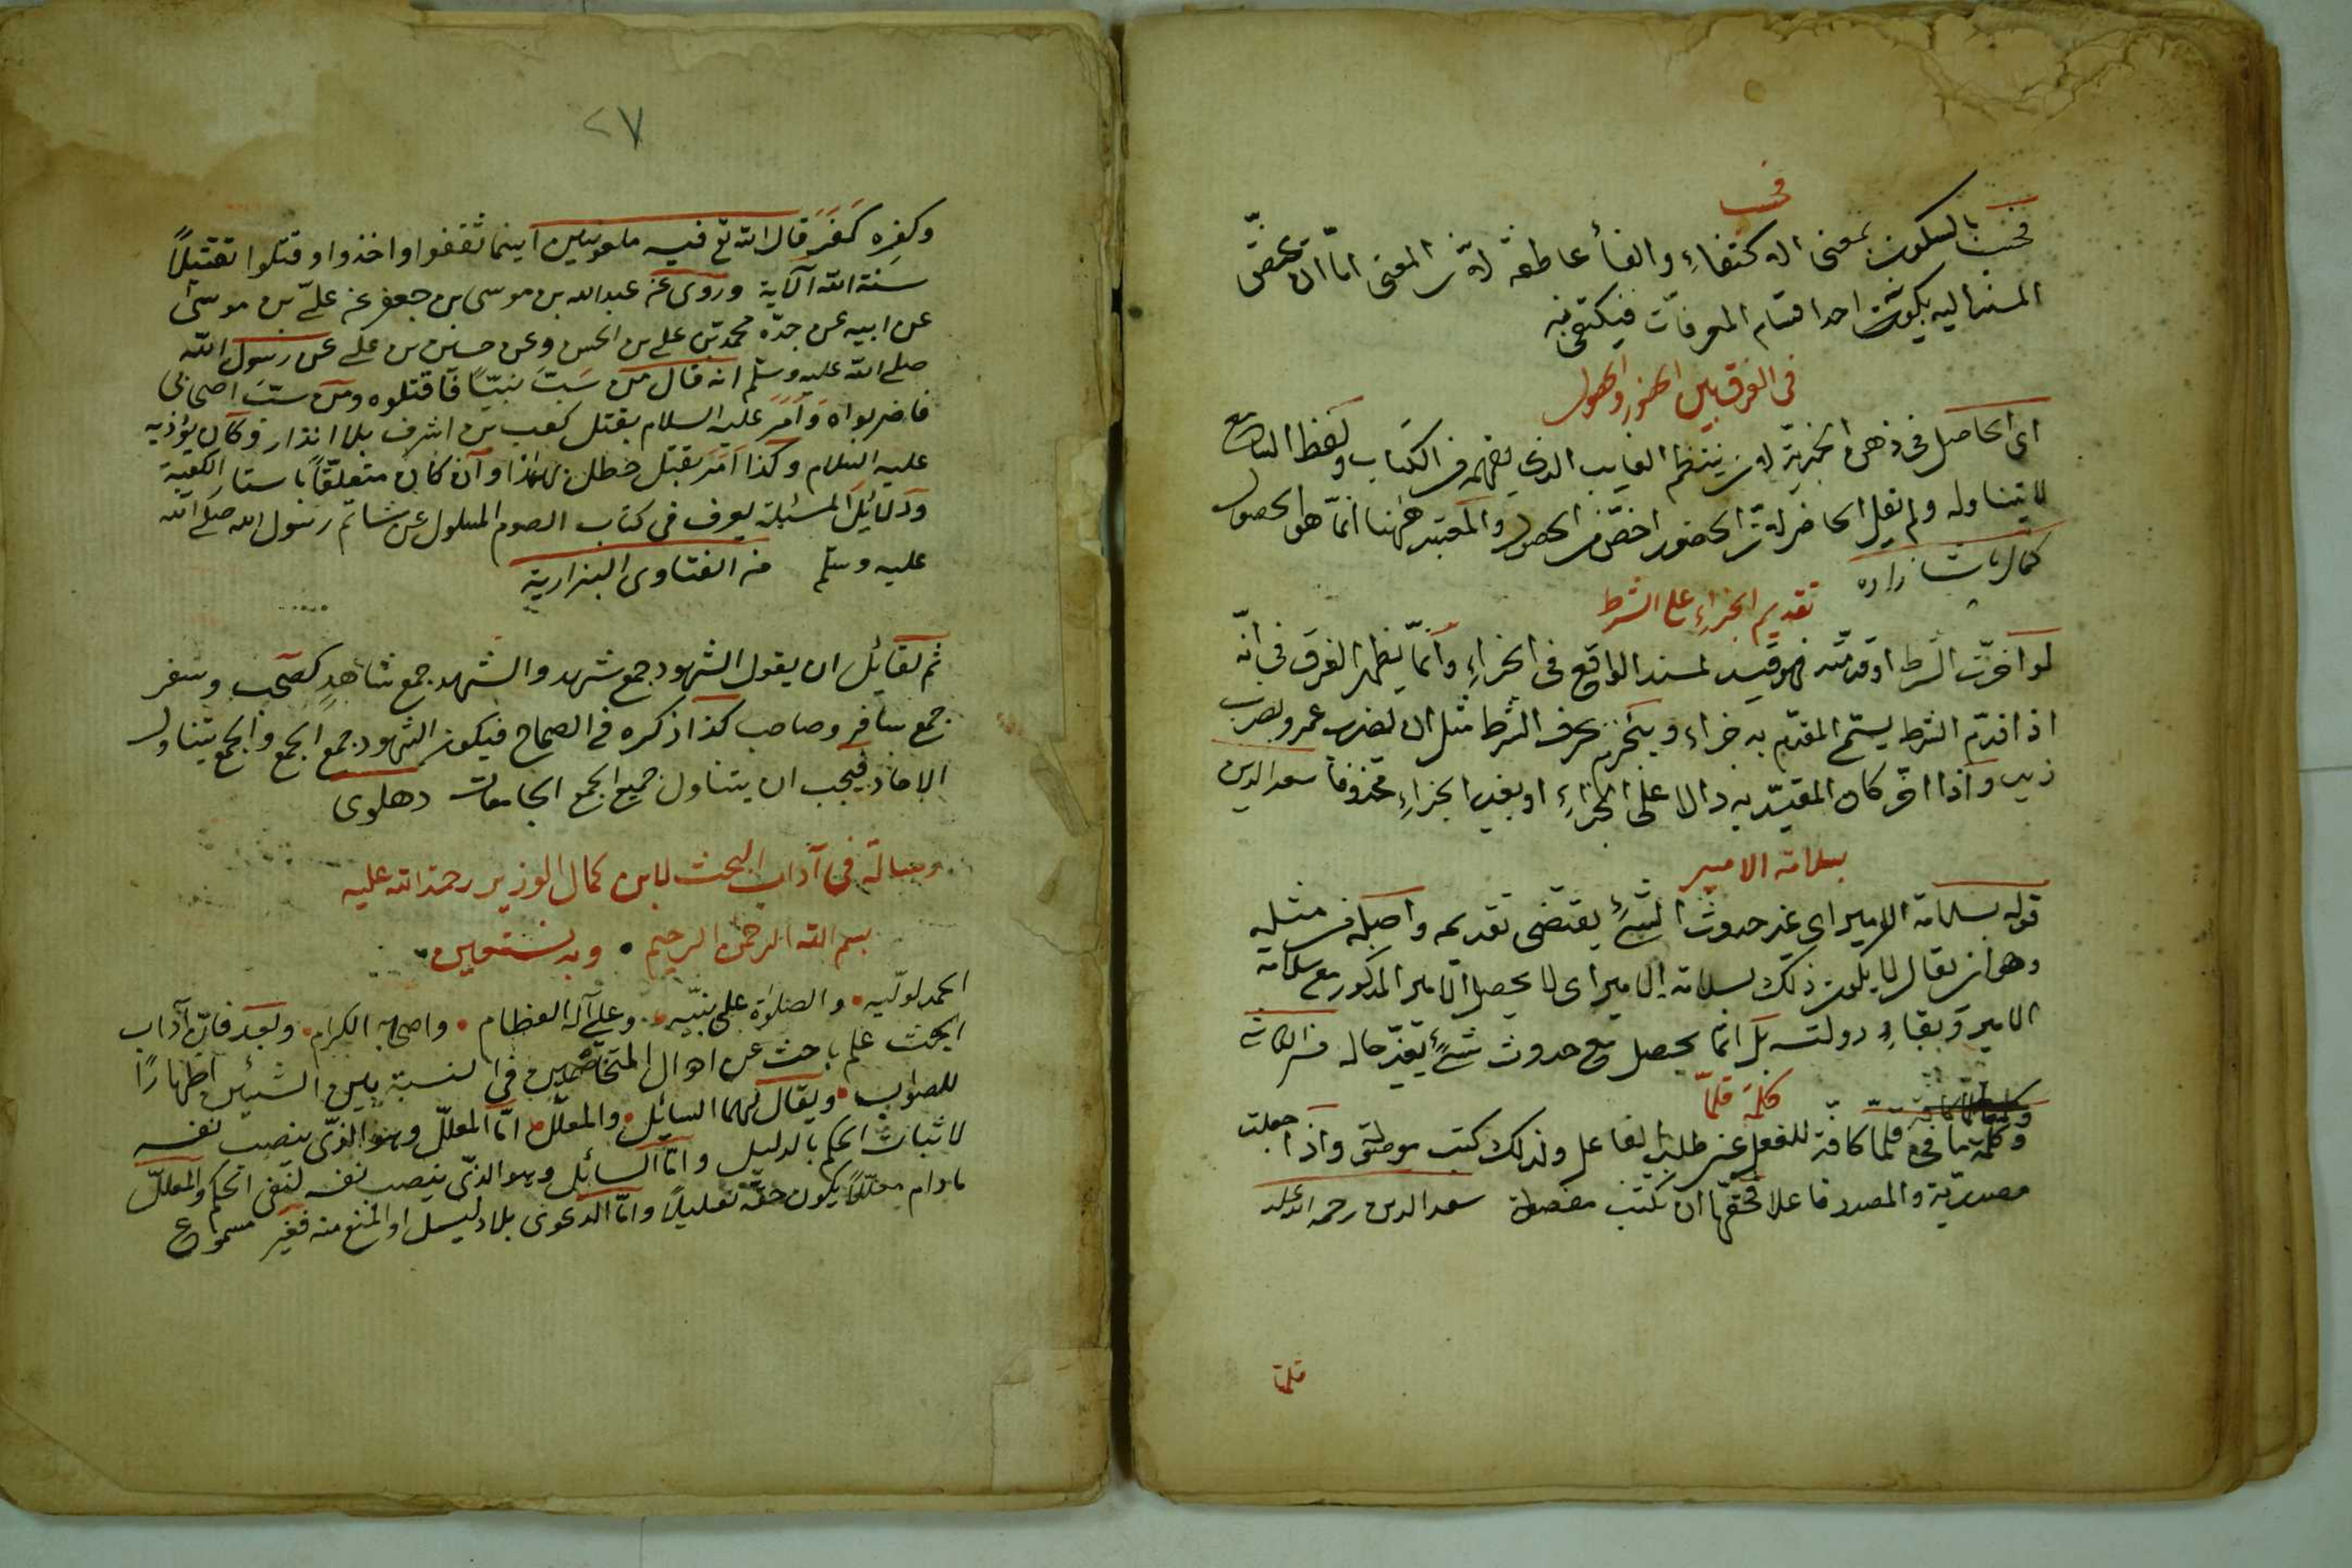 فحسب
فحسب بالسكون بمعنى الاكتفاء والفأ عاطفة لان المعنى امّا ان يختصّ
المسند اليه بكون احد اقسام المعرفات فيكتفى به
فى الفرق بين الحضور والحصول
اى الحاصل فى ذهن المخبر به لان ينتظم الغايب الذى يفهم من الكتاب ولفظ السامع
لا يتناوله ولم يقل الحاضر لان الحضور اخصّ من الحصول والمعتبر ههنا انّما هو الحصول
كمال پاشا زاده
تقديم الجزاء على الشرط
لو اخّرت الشرط او قدمته فهو قيد لمسند الواقع فى الجزاء وانّما يظهر الفرق فى انّه
اذا قدّم الشرط يسمّى المقدّم به جزاء وينجزم بحرف الشرط مثل ان يضرب عمرو يضرب
زيد واذا اخّر كان المقيّد به دالا على الجزاء او بغير الجزاء محذوفا سعد الدين
بسلامة الامير
قوله بسلامة الامير اى عند حدوث الشئ يقتضى تقديمه واصله فى مثله
وهو ان يقال لا يكون ذلك بسلامة الامير اى لا يحصل الامير المذكور مع سلامة
الامير وبقاء دولته بل انّما يحصل مع حدوث شئ يغيّر حاله
كلمة قلّما
وكلمة ما فى قلّما كافّة للفعل عن طلب الفاعل ولذلك كتبت موصلة واذا جعلت
مصدريّة والمصدر فاعلا فحقّها ان تكتب مفصولة سعد الدين رحمه الله عليه
قلما
٢٧
وكفره كفر قال الله تع فيه ملعونين اينما ثقفوا اخذوا وقتلوا تقتيلاً
سنة الله الآية وروى عن عبدالله بن موسى بن جعفر عن علىّ بن موسى
عن ابيه عن جدّه محمد بن على بن الحسن وعن حسين بن على عن رسول الله
صلى الله عليه وسلم انه قال من سبّ نبيّاً فاقتلوه ومن سبّ اصحابى
فاضربواه وامر عليه السلام بقتل كعب بن اشرف بلا انذار وكان يؤذيه
عليه السلام وكذا امر بقتل خطل بهذا وان كان متعلّقاً باستار الكعبة
ودلائل المسئلة يعرف فى كتاب الصوم المسلول عن شاتم رسول الله صلى الله
عليه وسلم من الفتاوى البزازية
ثم لقائل ان يقول الشهود جمع شهد والشهد جمع شاهد كصحب وسفر
جمع سافر وصاحب كذا ذكره فى الصحاح فيكون الشهود جمع الجمع والجمع يتناول
الاحاد فيجب ان يتناول جميع الجمع الجامعات دهلوى
رسالة فى آداب البحث لابن كمال الوزير رحمة الله عليه
بسم الله الرحمن الرحيم وبه نستعين
الحمد لوليّه والصلوة على نبيّه وعلى آله العظام واصحابه الكرام وبعد فانّ آداب
البحث علم باحث عن احوال المتخاصمين فى النسبة بين الشيئين اظهارًا
للصواب ويقال لهما السائل والمعلّل امّا المعلّل وهو الذى ينصب نفسه
لاثبات الحكم بالدليل وامّا السائل وهو الذى ينصب نفسه لنفى الحكم والمعلل
مادام معلّلاً يكون حقّه تعليلاً وامّا الدعوى بلا دليل او المنع منه فغير مسموع